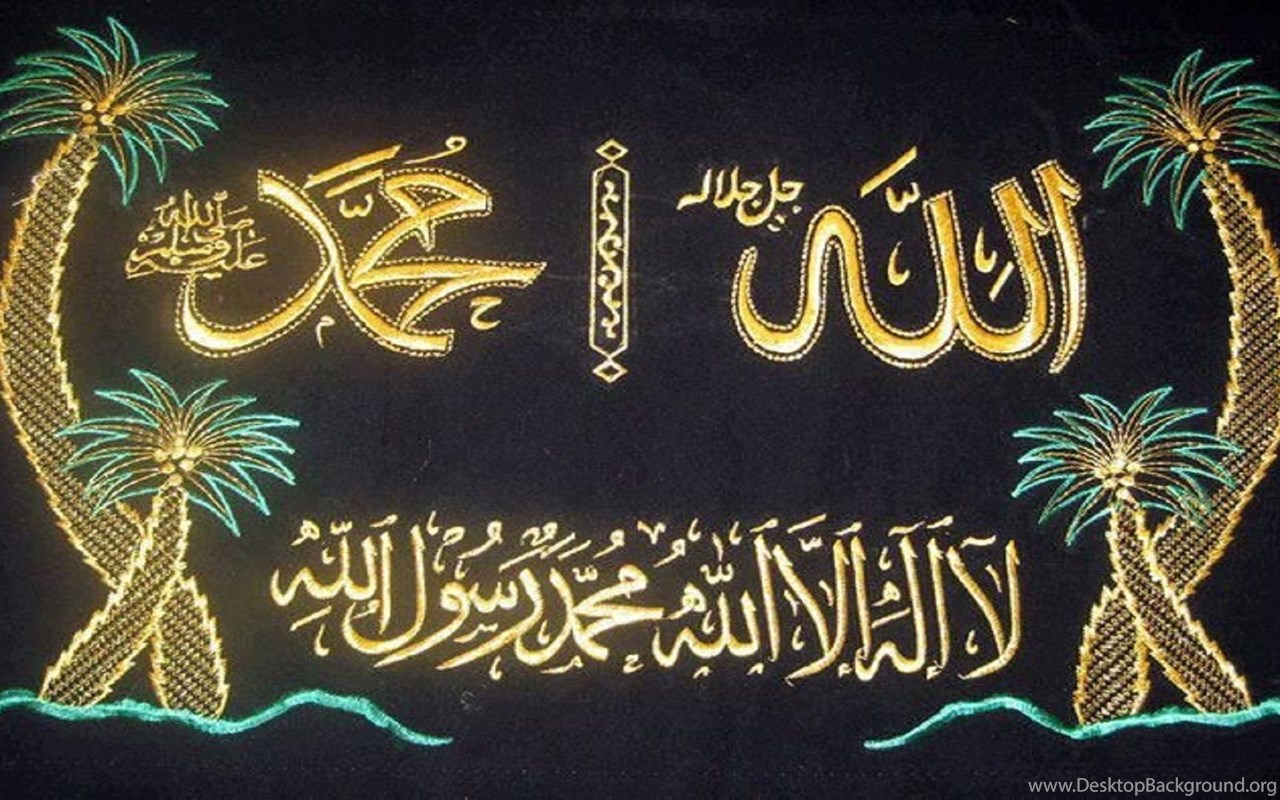 الله جل جلاله
محمد صلى الله عليه وسلم
لا اله الا الله محمد رسول الله
www.DesktopBackground.org